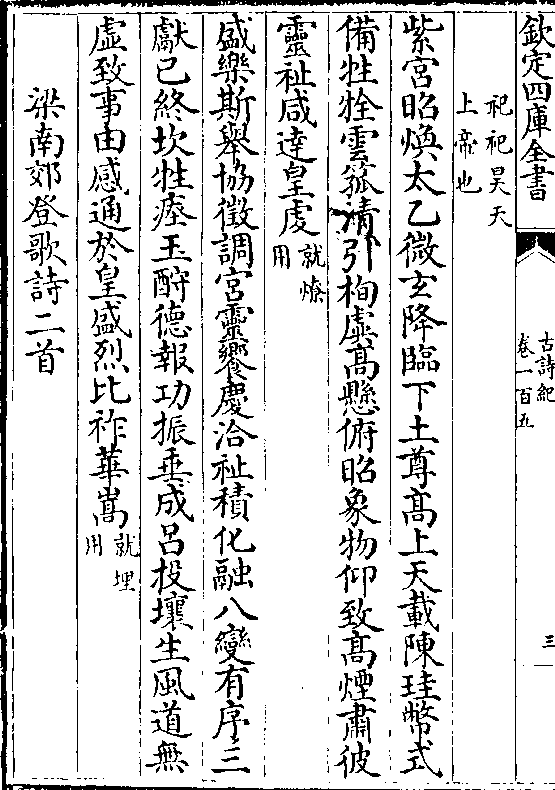 欽定四庫全書
古詩紀
卷一百五
三
祀祀昊天
上帝也
紫宮昭煥太乙微玄降臨下土尊髙上天載陳珪幣式
備牲牷雲箛清引栒虡髙懸俯昭象物仰致髙煙肅彼
靈祉咸達皇虔就燎
用
盛樂斯舉協徵調宮靈饗慶洽祉積化融八變有序三
獻已終坎牲瘞玉酧德報功振垂成呂投壤生風道無
虛致事由感通於皇盛烈比祚華嵩就埋
用
梁南郊登歌詩二首